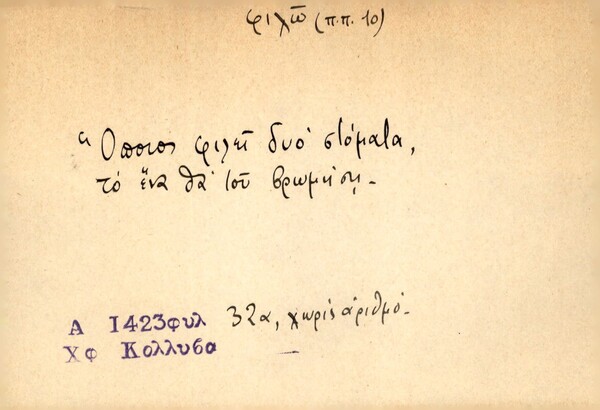 φιλῶ (π.π. 10)
Ὅποιος φιλεῖ δυό στόματα,
τό ἕνα θά τοῦ βρωμήσῃ.
Α 1423φυλ 32α, χωρίς ἀριθμό.
Χφ Κολλυβα